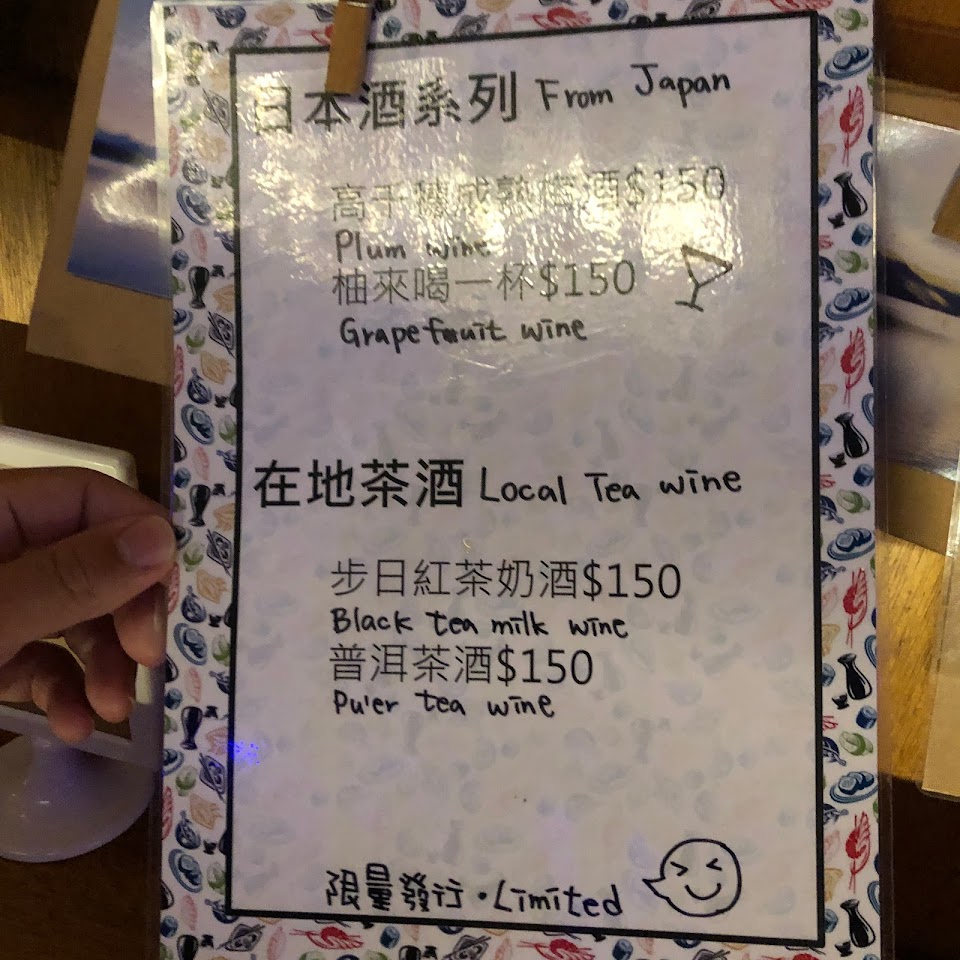 日本酒系列 From Japan
高千穗成熟梅酒$150
Plum wine
柚來喝一杯$150
Grapefruit wine
在地茶酒 Local Tea wine
步日紅茶奶酒$150
Black tea milk wine
普洱茶酒$150
Pu'er tea wine
限量發行・Limited